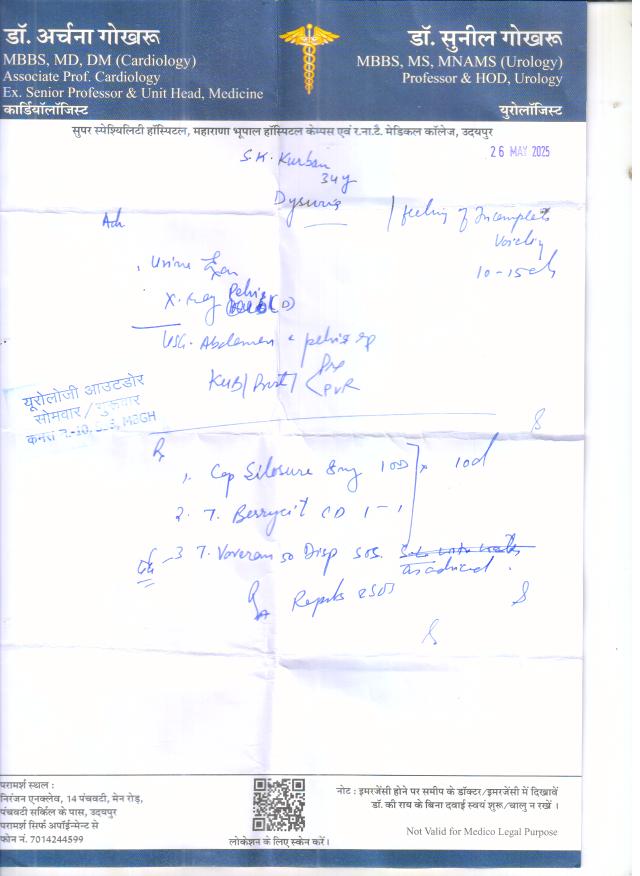 डॉ. अर्चना गोखरू
MBBS, MD, DM (Cardiology)
Associate Prof. Cardiology
Ex. Senior Professor & Unit Head, Medicine
कार्डियॉलॉजिस्ट
डॉ. सुनील गोखरू
MBBS, MS, MNAMS (Urology)
Professor & HOD, Urology
युरोलॉजिस्ट
सुपर स्पेश्यिलिटी हॉस्पिटल, महाराणा भूपाल हॉस्पिटल केम्पस एवं र.ना.टै. मेडिकल कॉलेज, उदयपुर
S.K. Kurban
26 MAY 2025
34y
Dysuria / feeling of Incomplete
Voiding
10-15
Adv
Urine
X-Ray Pelvis
(D)
USG. Abdomen & pelvis
KUB/Prost/ Pre
PVR
यूरोलोजी आउटडोर
सोमवार / शुक्रवार
MBGH
Rx
1. Cap Silosure 8mg 1OD x 10d
2. T. Berrycit CD 1-1
3 T. Voveran 50 Disp SOS.
as advised.
Reports
परामर्श स्थल :
निरंजन एनक्लेव, 14 पंचवटी, मेन रोड़,
पंचवटी सर्किल के पास, उदयपुर
परामर्श सिर्फ अपॉईन्मेन्ट से
फोन नं. 7014244599
लोकेशन के लिए स्केन करें।
नोट : इमरजेंसी होने पर समीप के डॉक्टर/इमरजेंसी में दिखावें
डॉ. की राय के बिना दवाई स्वयं शुरू/चालु न रखें ।
Not Valid for Medico Legal Purpose